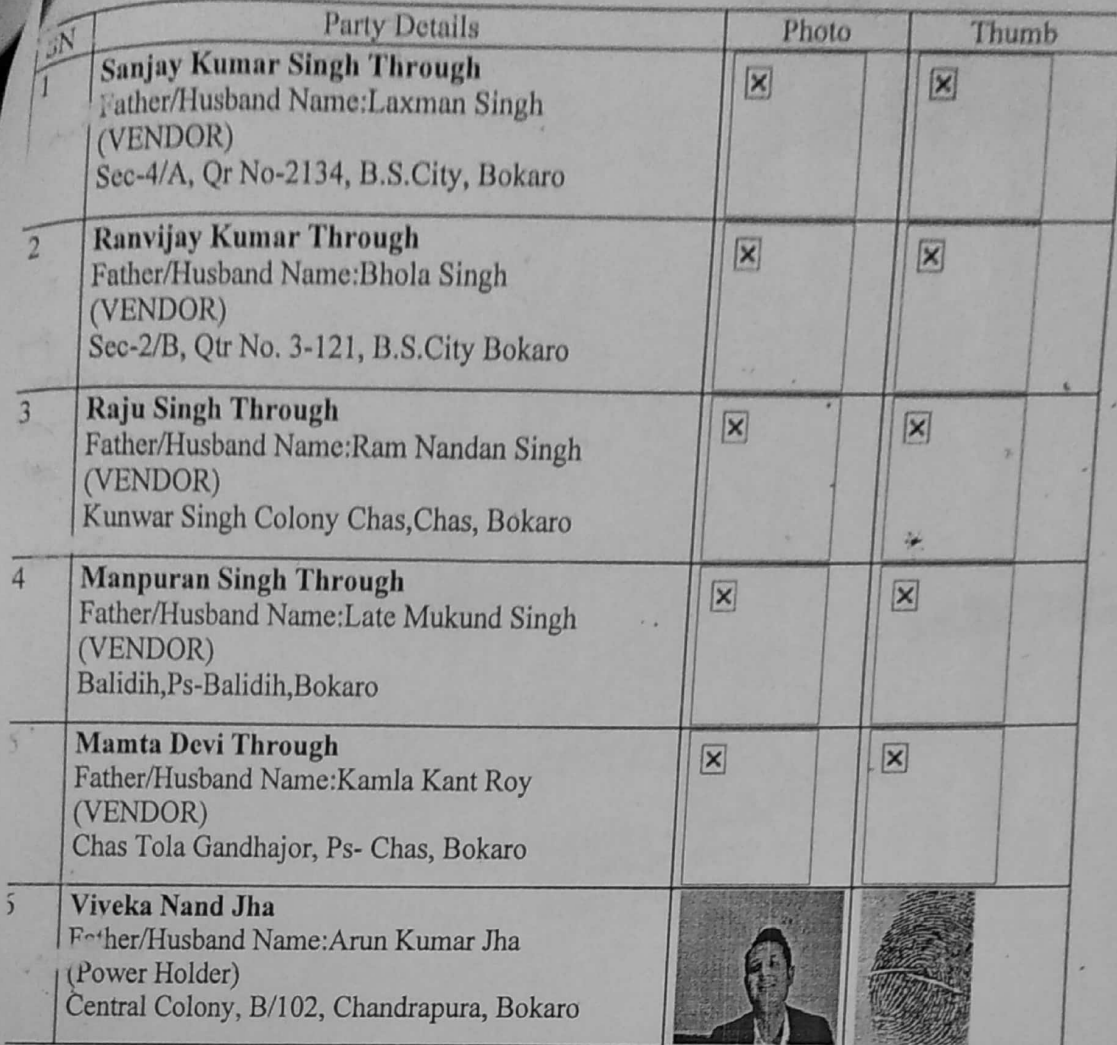 SN Party Details Photo Thumb
1 Sanjay Kumar Singh Through
Father/Husband Name:Laxman Singh
(VENDOR)
Sec-4/A, Qr No-2134, B.S.City, Bokaro
2 Ranvijay Kumar Through
Father/Husband Name:Bhola Singh
(VENDOR)
Sec-2/B, Qtr No. 3-121, B.S.City Bokaro
3 Raju Singh Through
Father/Husband Name:Ram Nandan Singh
(VENDOR)
Kunwar Singh Colony Chas,Chas, Bokaro
4 Manpuran Singh Through
Father/Husband Name:Late Mukund Singh
(VENDOR)
Balidih,Ps-Balidih,Bokaro
5 Mamta Devi Through
Father/Husband Name:Kamla Kant Roy
(VENDOR)
Chas Tola Gandhajor, Ps- Chas, Bokaro
Viveka Nand Jha
Father/Husband Name:Arun Kumar Jha
(Power Holder)
Central Colony, B/102, Chandrapura, Bokaro